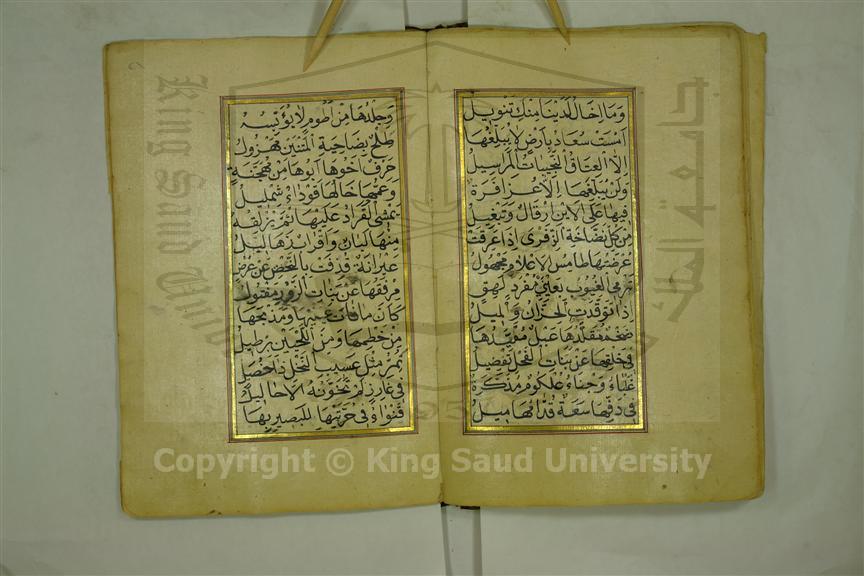 وَمَا اِخَالُ لَدَيْنَا مِنْكِ تَنْوِيلُ
اَمْسَتْ سُعَادُ بِاَرْضٍ لَا يُبَلِّغُهَا
اِلَّا الْعِتَاقُ النَّجِيبَاتُ الْمَرَاسِيلُ
وَلَنْ يُبَلِّغَهَا اِلَّا عُذَافِرَةٌ
فِيهَا عَلَى الْاَيْنِ اِرْقَالٌ وَتَبْغِيلُ
مِنْ كُلِّ نَضَّاخَةِ الذِّفْرَى اِذَا عَرِقَتْ
عُرْضَتُهَا طَامِسُ الْاَعْلَامِ مَجْهُولُ
تَرْمِي الْغُيُوبَ بِعَيْنَيْ مُفْرَدٍ لَهِقٍ
اِذَا تَوَقَّدَتِ الْحُزَّانُ وَالْمِيلُ
ضَخْمٌ مُقَلَّدُهَا عَبْلٌ مُقَيَّدُهَا
فِي خَلْقِهَا عَنْ بَنَاتِ الْفَحْلِ تَفْضِيلُ
غَلْبَاءُ وَجْنَاءُ عُلْكُومٌ مُذَكَّرَةٌ
فِي دَفِّهَا سَعَةٌ قُدَّامُهَا مِيلُ
وَجِلْدُهَا مِنْ اَطُومٍ لَا يُؤَيِّسُهُ
طِلْحٌ بِضَاحِيَةِ الْمَتْنَيْنِ مَهْزُولُ
حَرْفٌ اَخُوهَا اَبُوهَا مِنْ مُهَجَّنَةٍ
وَعَمُّهَا خَالُهَا قَوْدَاءُ شِمْلِيلُ
يَمْشِي الْقُرَادُ عَلَيْهَا ثُمَّ يُزْلِقُهُ
مِنْهَا لَبَانٌ وَاَقْرَابٌ زَهَالِيلُ
عَيْرَانَةٌ قُذِفَتْ بِالنَّحْضِ عَنْ عُرُضٍ
مِرْفَقُهَا عَنْ بَنَاتِ الزَّوْرِ مَفْتُولُ
كَاَنَّ مَا فَاتَ عَيْنَيْهَا وَمَذْبَحَهَا
مِنْ خَطْمِهَا وَمِنَ اللَّحْيَيْنِ بِرْطِيلُ
تُمِرُّ مِثْلَ عَسِيبِ النَّخْلِ ذَا خُصَلٍ
فِي غَارِزٍ لَمْ تَخَوَّنْهُ الْاَحَالِيلُ
قَنْوَاءُ فِي حُرَّتَيْهَا لِلْبَصِيرِ بِهَا
King Saud University
جامعة الملك
1957
Copyright © King Saud University